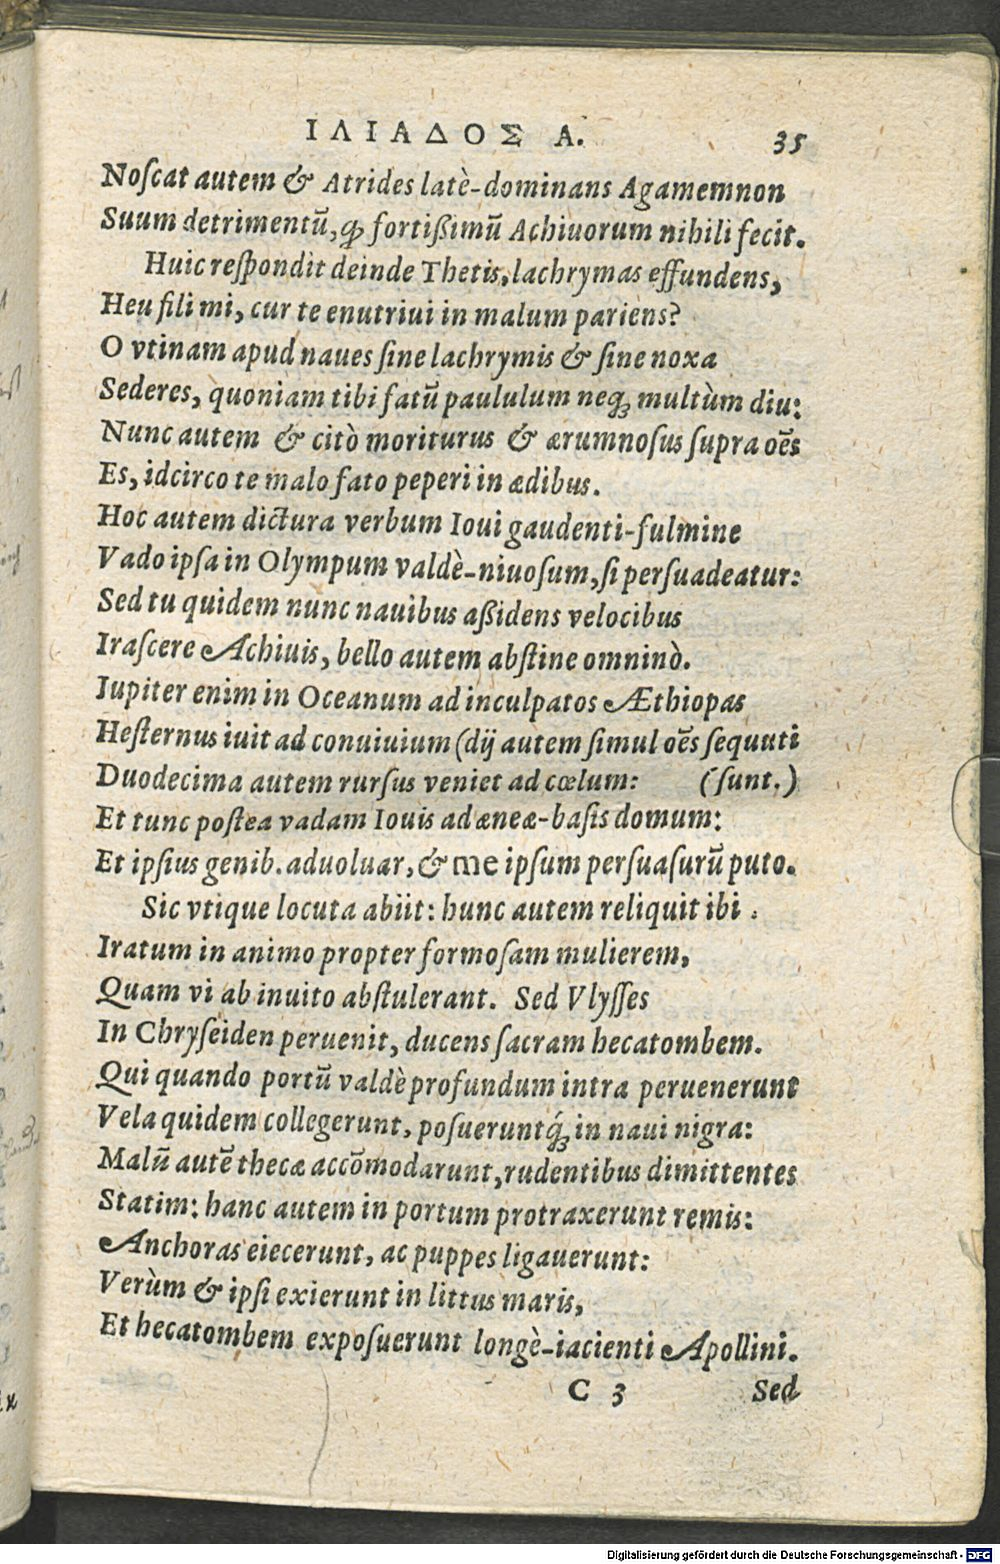 ΙΛΙΑΔΟΣ Α. 35
Noſcat autem & Atrides latè-dominans Agamemnon
Suum detrimentū, ꝙ fortiſſimū Achiuorum nihili fecit.
Huic reſpondit deinde Thetis, lachrymas effundens,
Heu fili mi, cur te enutriui in malum pariens?
O vtinam apud naues ſine lachrymis & ſine noxa
Sederes, quoniam tibi fatū paululum neqꝫ multùm diu:
Nunc autem & citò moriturus & ærumnoſus ſupra oēs
Es, idcirco te malo fato peperi in ædibus.
Hoc autem dictura verbum Ioui gaudenti-fulmine
Vado ipſa in Olympum valdè-niuoſum, ſi perſuadeatur:
Sed tu quidem nunc nauibus aſſidens velocibus
Iraſcere Achiuis, bello autem abſtine omninò.
Iupiter enim in Oceanum ad inculpatos Æthiopas
Heſternus iuit ad conuiuium (dij autem ſimul oēs ſequuti
Duodecima autem rurſus veniet ad cœlum: (ſunt.)
Et tunc poſtea vadam Iouis ad æneæ-baſis domum:
Et ipſius genib. aduoluar, & me ipſum perſuaſurū puto.
Sic vtique locuta abiit: hunc autem reliquit ibi.
Iratum in animo propter formoſam mulierem,
Quam vi ab inuito abſtulerant. Sed Vlyſſes
In Chryſeiden peruenit, ducens ſacram hecatombem.
Qui quando portū valdè profundum intra peruenerunt
Vela quidem collegerunt, poſueruntq́ꝫ in naui nigra:
Malū autē thecæ accōmodarunt, rudentibus dimittentes
Statim: hanc autem in portum protraxerunt remis:
Anchoras eiecerunt, ac puppes ligauerunt:
Verùm & ipſi exierunt in littus maris,
Et hecatombem expoſuerunt longè-iacienti Apollini.
C 3 Sed
Digitalisierung gefördert durch die Deutsche Forschungsgemeinschaft - DFG